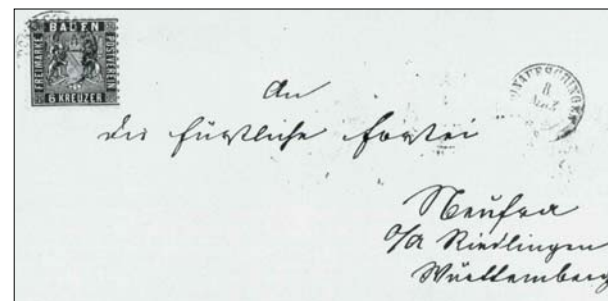 BADEN
FREIMARKE
POSTVEREIN
6 KREUZER
DONAUESCHINGEN
8
An
die fürstliche Forstei
Neufra
O/A Riedlingen
Württemberg